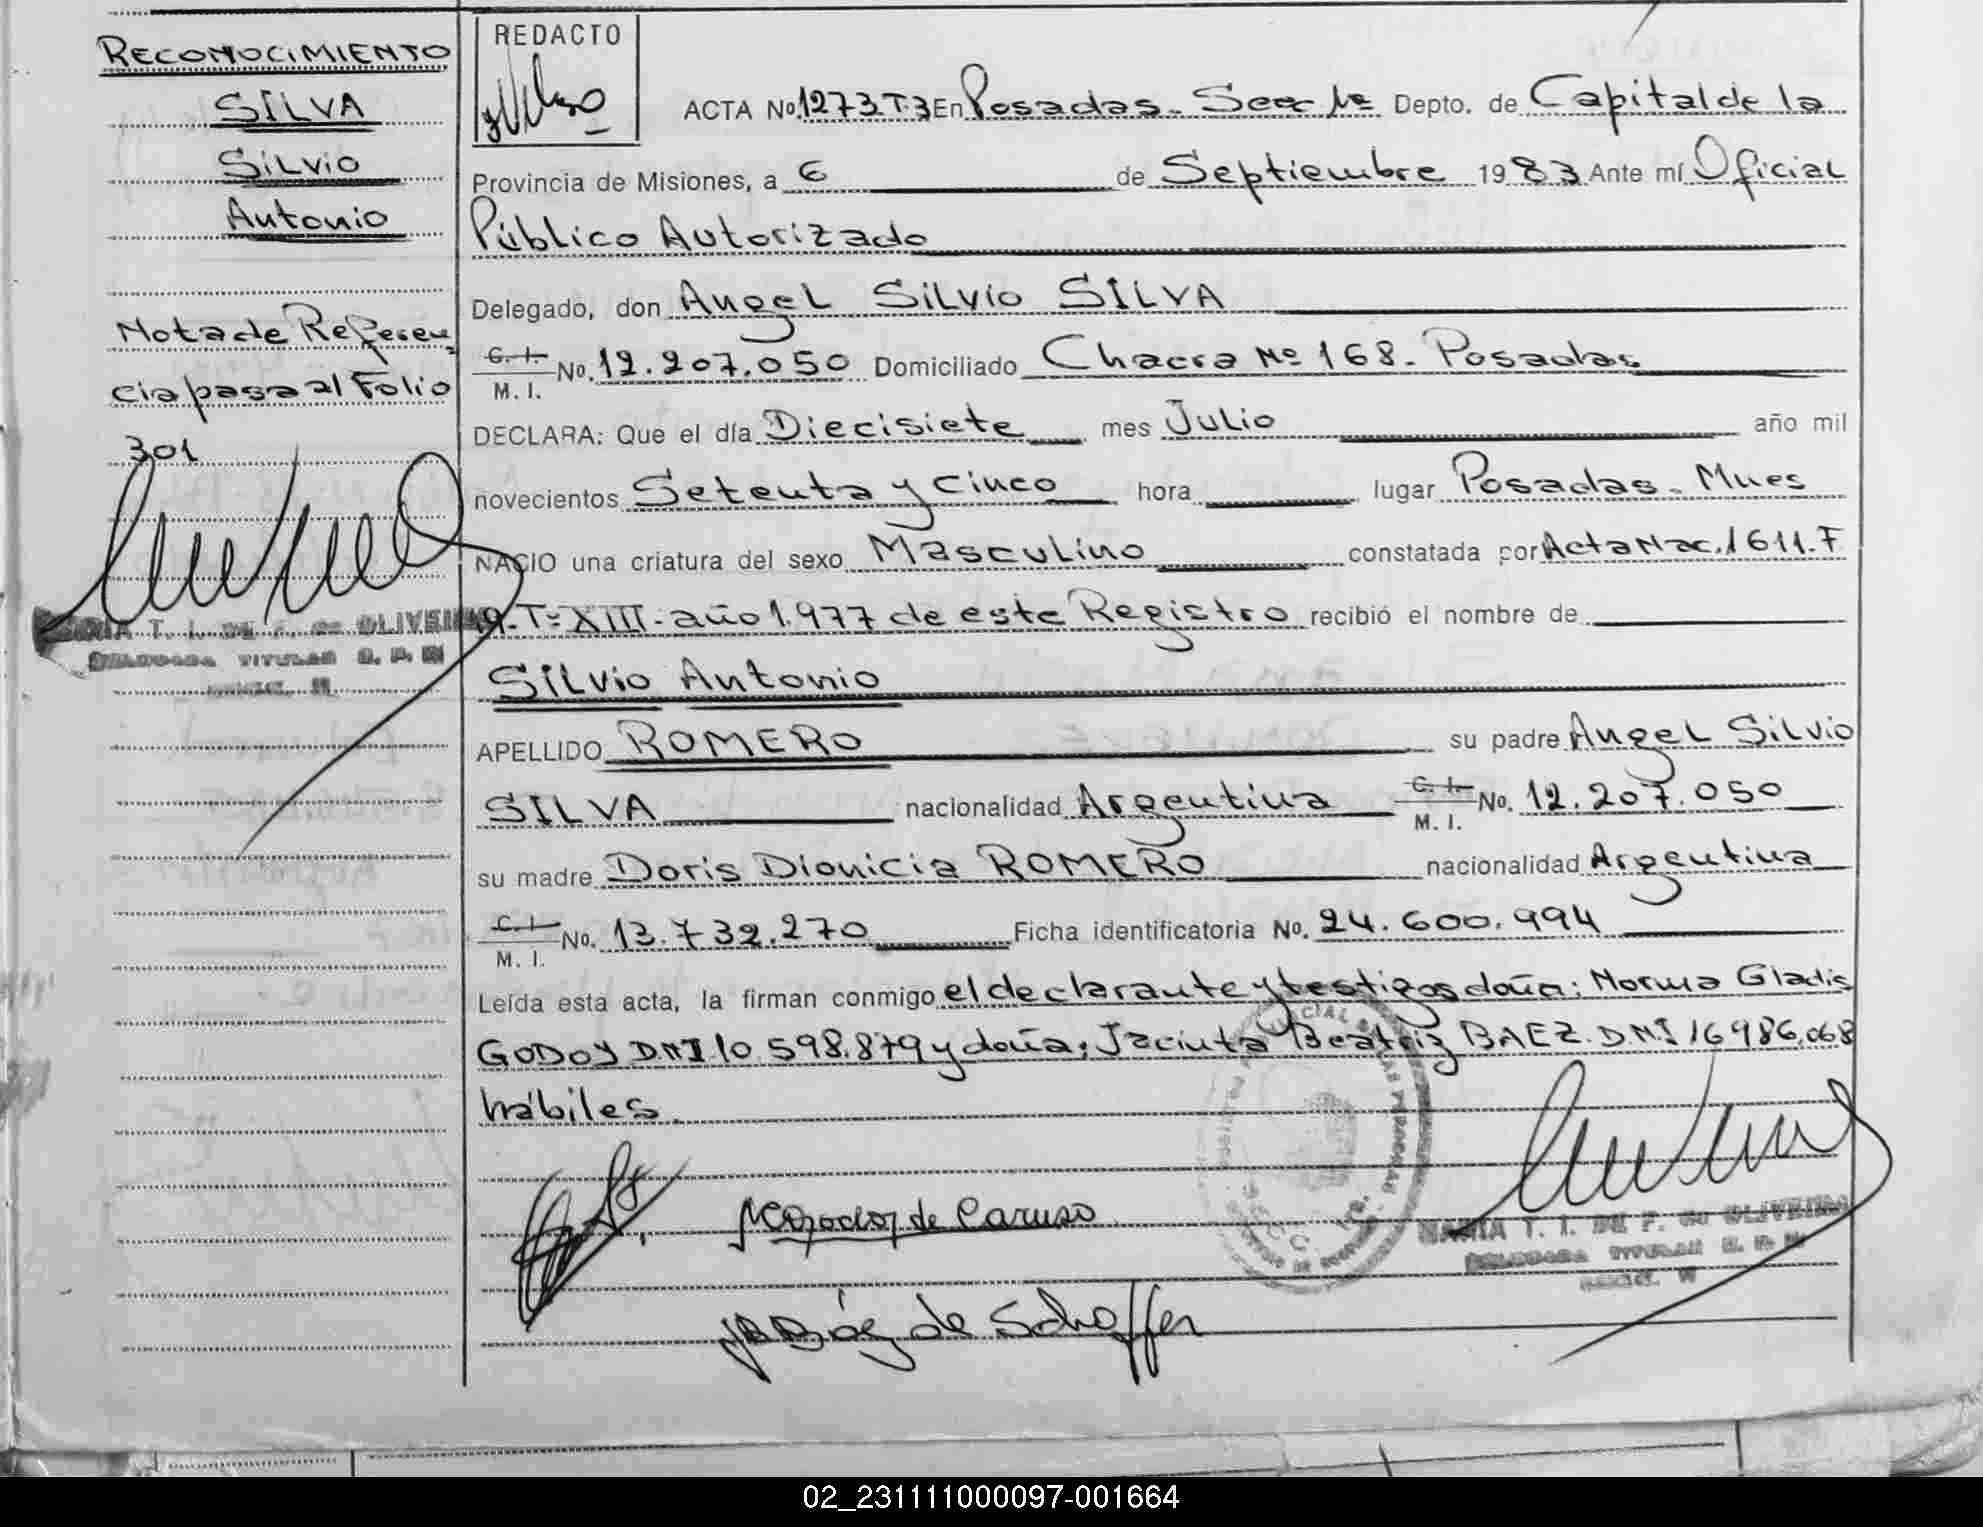 RECONOCIMIENTO
SILVA
Silvio
Antonio
Nota de Referen
cia pasa al Folio
301
MARIA T. I. DE F. de OLIVEIRA
DELEGADA TITULAR
REDACTO
ACTA No. 1273.T.3 En Posadas. Secc 1ª Depto. de Capital de la
Provincia de Misiones, a 6 de Septiembre 1983 Ante mí Oficial
Público Autorizado
Delegado, don Angel Silvio SILVA
C. I. M. I. No. 12.207.050 Domiciliado Chacra Nº 168. Posadas
DECLARA: Que el día Diecisiete mes Julio año mil
novecientos Setenta y Cinco hora lugar Posadas. Mnes
NACIO una criatura del sexo Masculino constatada por Acta Nac. 1611. F
9. Tº XIII. año 1.977 de este Registro recibió el nombre de
Silvio Antonio
APELLIDO ROMERO su padre Angel Silvio
SILVA nacionalidad Argentina C. I. M. I. No. 12.207.050
su madre Doris Dionicia ROMERO nacionalidad Argentina
C. I. M. I. No. 13.732.270 Ficha identificatoria No. 24.600.994
Leída esta acta, la firman conmigo el declarante y testigos doña: Norma Gladis
GODOY DNI 10.598.879 y doña: Jacinta Beatriz BAEZ. DNI 16986.068
hábiles.
de Caruso
de Schaffer
MARIA T. I. DE F. de OLIVEIRA
DELEGADA TITULAR
02_231111000097-001664